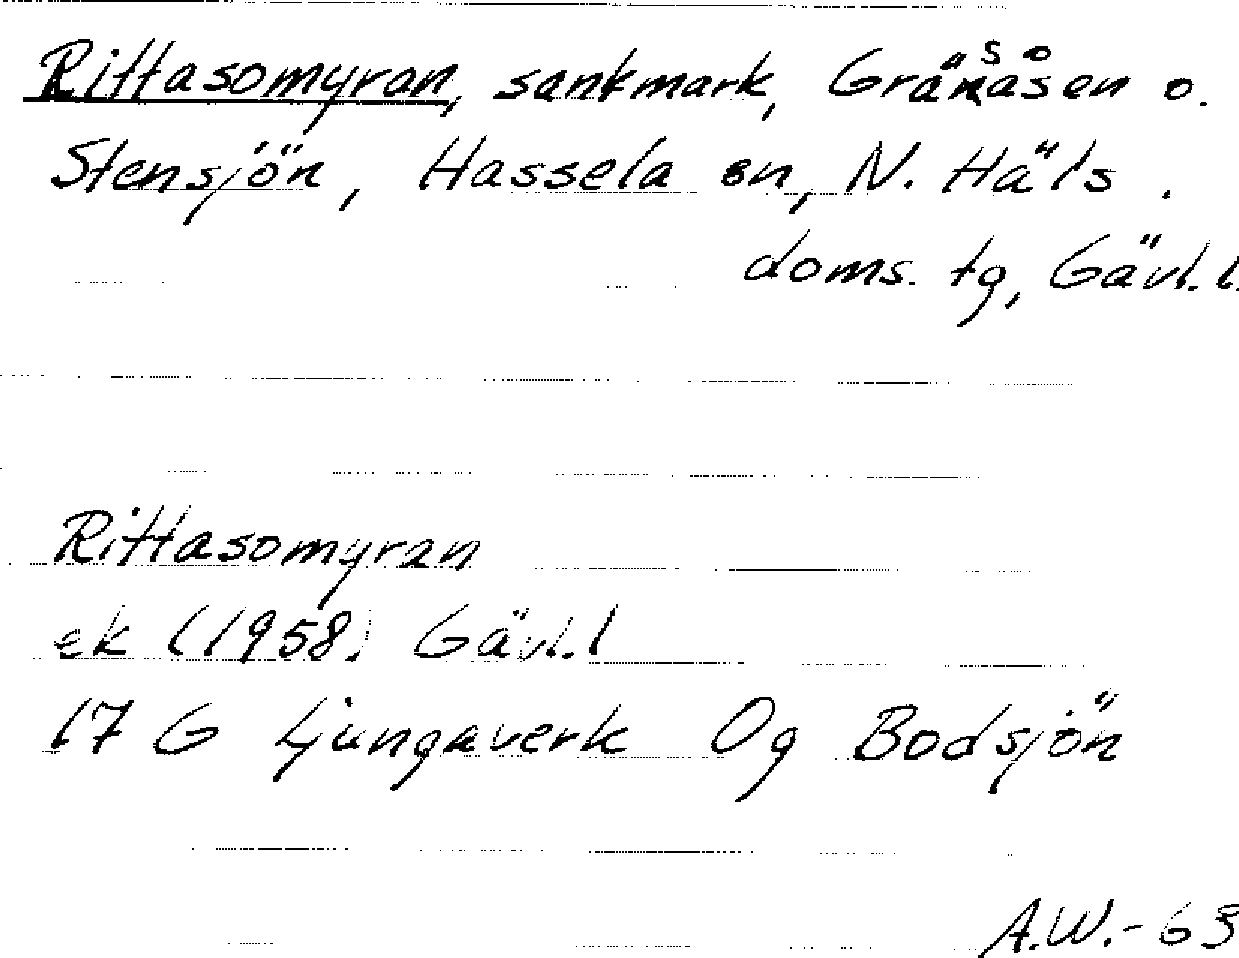 Rittasomyran, sankmark, Gränsåsen o.
Stensjön, Hassela sn, N. Häls.
doms. tg, Gävl. l.
Rittasomyran
ek (1958) Gävl. l
17 G Ljungaverk Og Bodsjön
A.W.-63